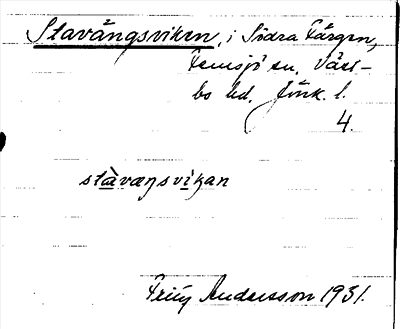 Stavångsviken, i Södra Färgen,
Femsjö sn. Väst-
bo hd. Jönk. l.
4.
stàvæŋsvikan
Frity Andersson 1931.